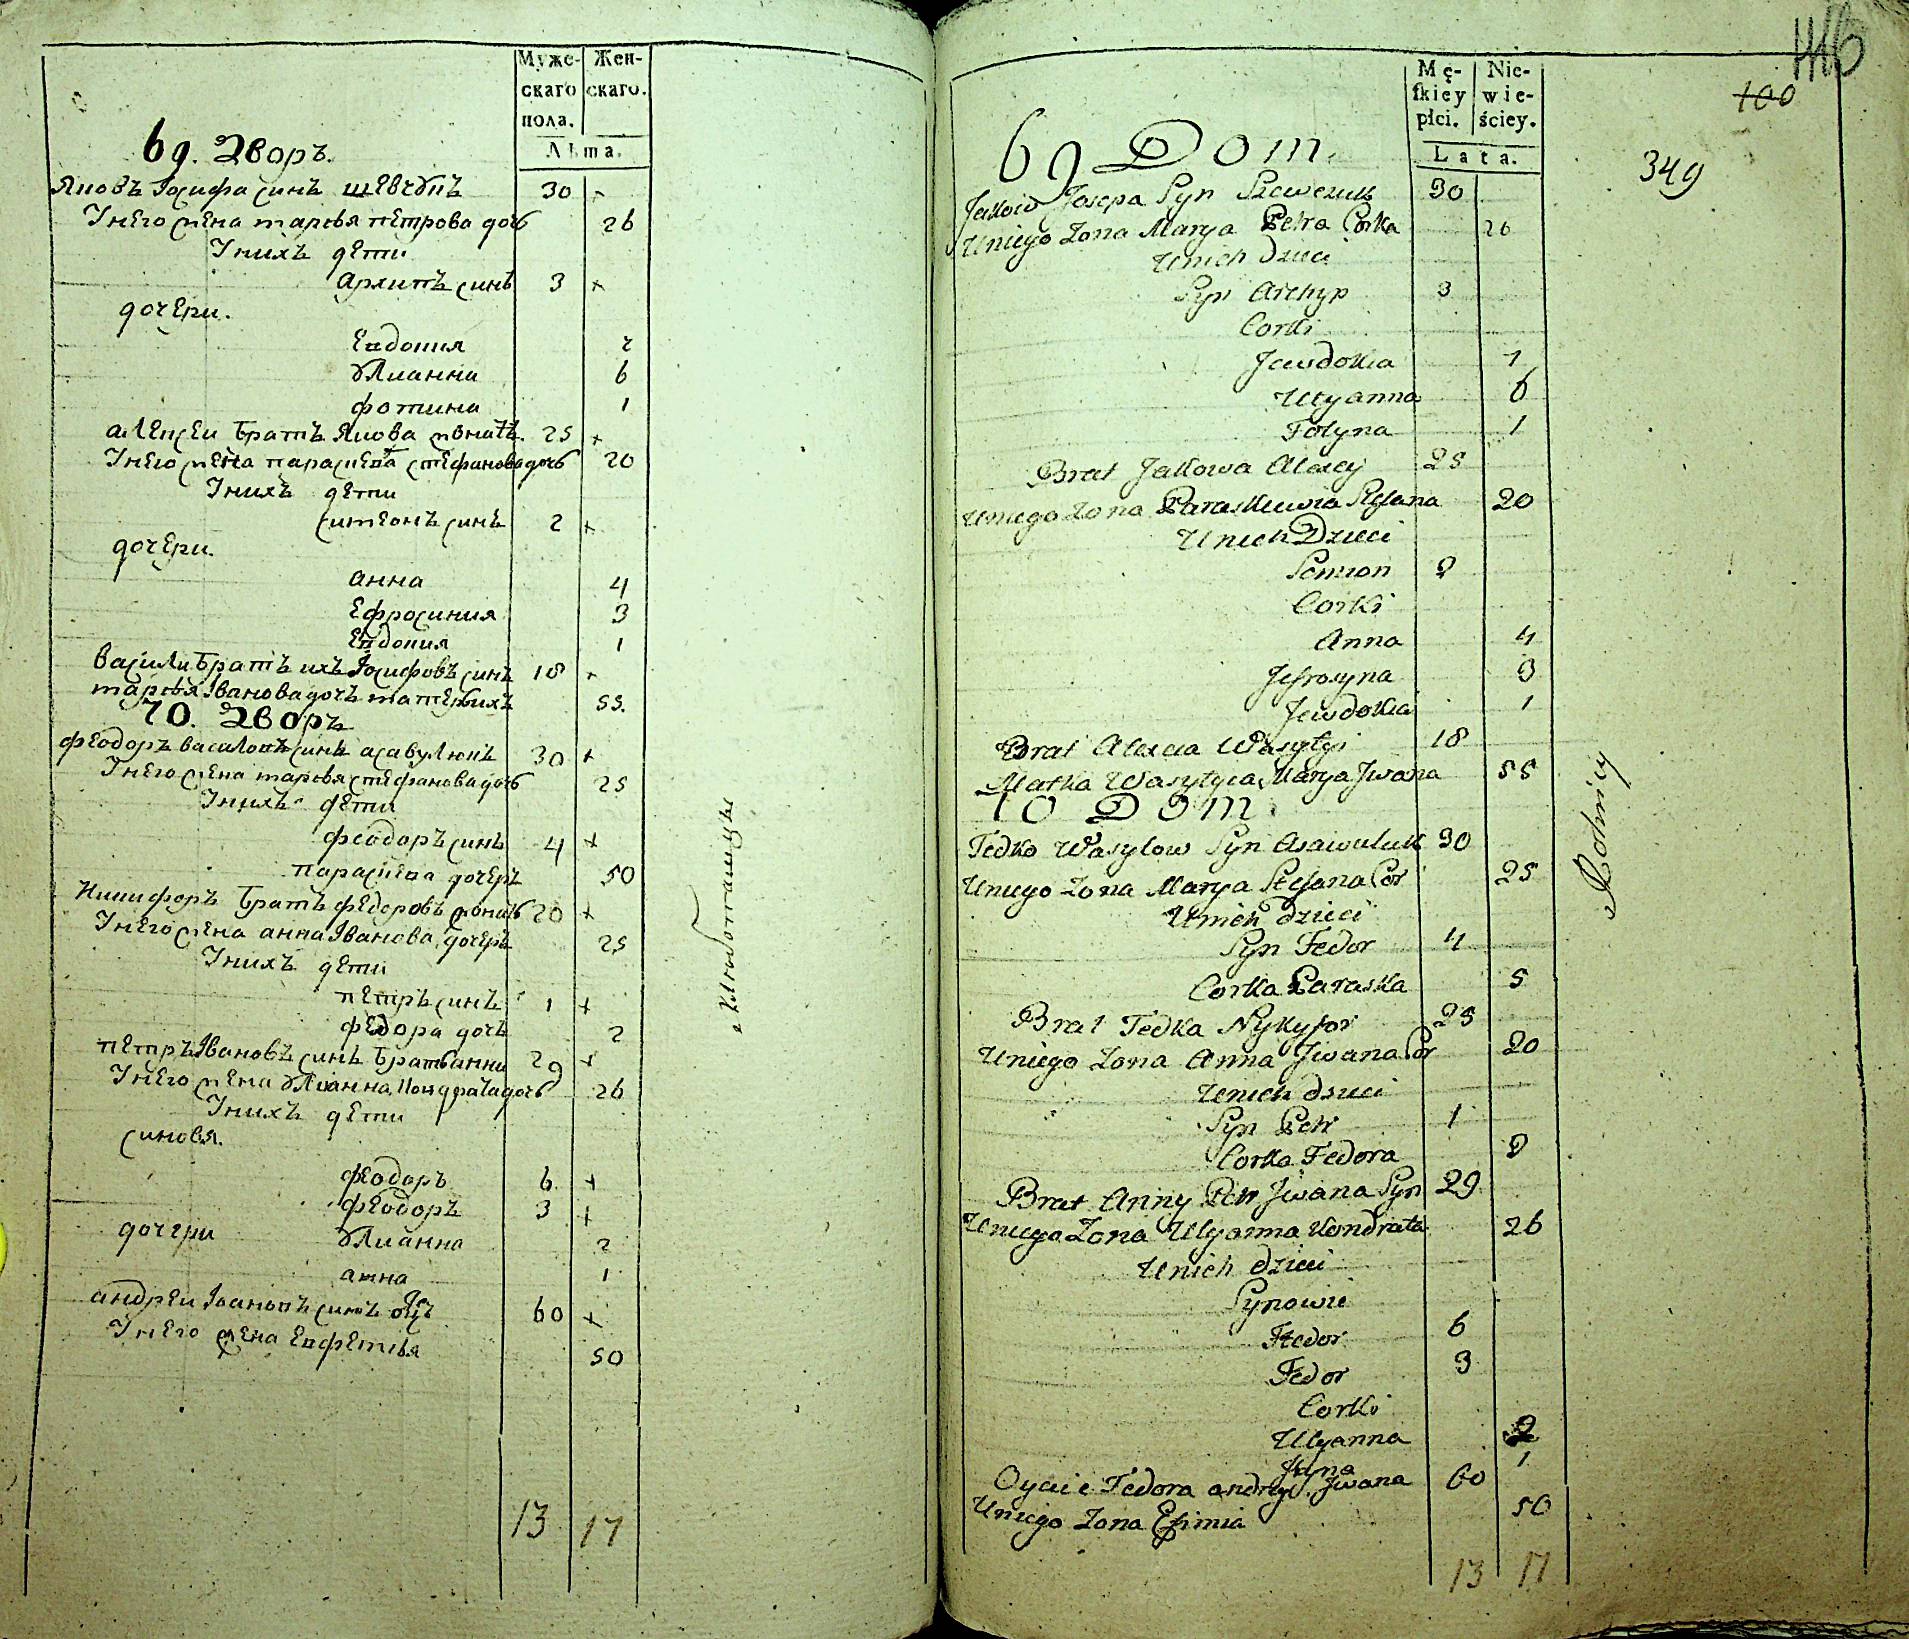 Муже- Жен-
скаго скаго.
пола.
Лѣта.
69. Дворъ.
Яковъ Іосифа синъ шевчукъ 30
Унего жена маръя петрова доч 26
Унихъ дети
архипъ синъ 3
дочери.
Евдокия 7
Улианна 6
фотина 1
алексеи братъ Якова женатъ. 25
Унего жена параскева стефановадоч 20
Унихъ дети
симеонъ синъ 2
дочери.
анна 4
Ефросиния 3
Евдокия 1
василибратъ ихъ Іосифовъ синъ 18
маръя Івановадочъ матеръихъ 55.
70. Дворъ
феодоръ василовъ синъ асавулюкъ 30
Унего жена маръя стефановадоч 25
Унихъ дети
феодоръ синъ 4
параскева дочеръ 50
Никифоръ братъ федоровъ женатъ 20
Унего жена анна Іванова дочеръ 25
Унихъ дети
петръ синъ 1
федора дочъ 2
петръ Івановъ синъ братъанни 29
Унего жена Улианна Кондратадоч 26
Унихъ дети
синовя.
феодоръ 6
феодоръ 3
дочери Улианна 2
анна 1
андреи Іоановъ синъ оцъ 60
Унего жена Евфемъя 50
13 17
хлиботамци
Mę- Nie-
ſkiey wie-
płci. ściey.
Lata.
116
100
349
69 Dom
Jakow Josepa Syn Szewczuk 30
Uniego Zona Marya Petra Corka 26
Unich Dzieci
Syn Archyp 3
Corki
Jewdokia 7
Ulyanna 6
Fotyna 1
Brat Jakowa Alexey 25
Uniego Zona Paraskewia Stefana 20
Unich Dzieci
Semion 2
Corki
Anna 4
Jefrosyna 3
Jewdokia 1
Brat Alexia Wasylyi 18
Matka Wasylyia Marya Jwana 55
70 Dom
Fedko Wasylow Syn Asawuluk 30
Uniego Zona Marya Stefana Cor 25
Unich dzieci
Syn Fedor 4
Corka Paraska 5
Brat Fedka Nykyfor 25
Uniego Zona Anna Jwana Cor 20
Unich dzieci
Syn Petr 1
Corka Fedora 2
Brat Anny Petr Jwana Syn 29
Uniego Zona Ulyanna Kondrata 26
Unich dzieci
Synowie
Fedor 6
Fedor 3
Corki
Ulyanna 2
Hana 1
Oyciec Fedora andryi Jwana 60
Uniego Zona Efimia 50
13 17
Rolnicy